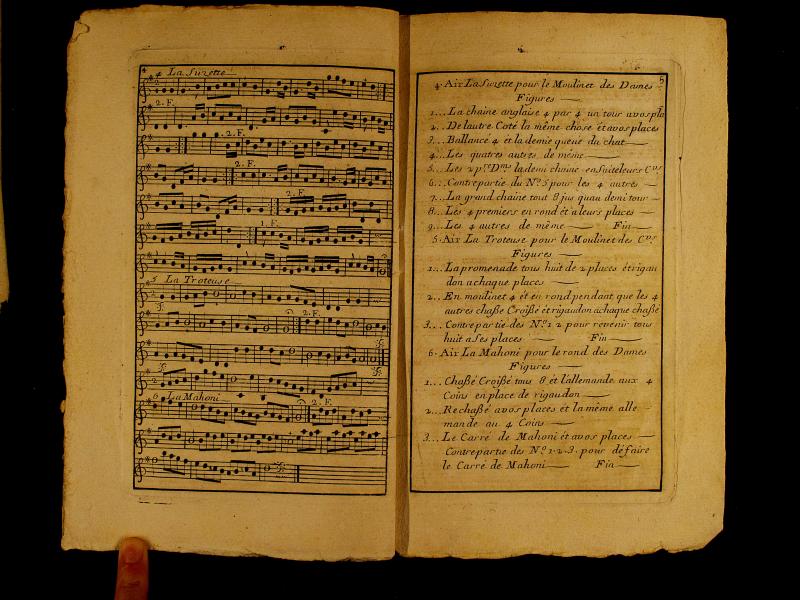 4
4 La Suzette
2. F.
2. F.
2. F.
2. F.
1. F.
5 La Troteuse
2. F.
6 La Mahoni
2. F.
5
4. Air La Suzette pour le Moulinet des Dames
Figures
1... La chaine anglaise 4 par 4 un tour avos pla
2... De lautre Coté la même chose et avos places
3... Ballancé 4 et la demie queue du chat
4... Les quatres autres de même
5... Les 2 p.rs D.mes la demi chaine ensuite leurs C.rs
6... Contrepartie du N.o 5 pour les 4 autres
7... La grand chaine tout 8 jus quau demi tour
8... Les 4 premiers en rond et a leurs places
9... Les 4 autres de même Fin
5. Air La Troteuse pour le Moulinet des C.rs
Figures
1... La promenade tous huit de 2 places et rigau
don a chaque places
2... En moulinet 4 et en rond pendant que les 4
autres chaßé Croißé et rigaudon a chaque chaßé
3... Contrepartie des N.o 1 2 pour revenir tous
huit a ses places Fin
6. Air La Mahoni pour le rond des Dames
Figures
1... Chaßé Croißé tous 8 et l'allemande aux 4
Coins en place de rigaudon
2... Rechaßé avos places et la même alle
mande au 4 Coins
3... Le Carré de Mahoni et avos places
Contrepartie des N.o 1. 2. 3. pour défaire
le Carré de Mahoni Fin